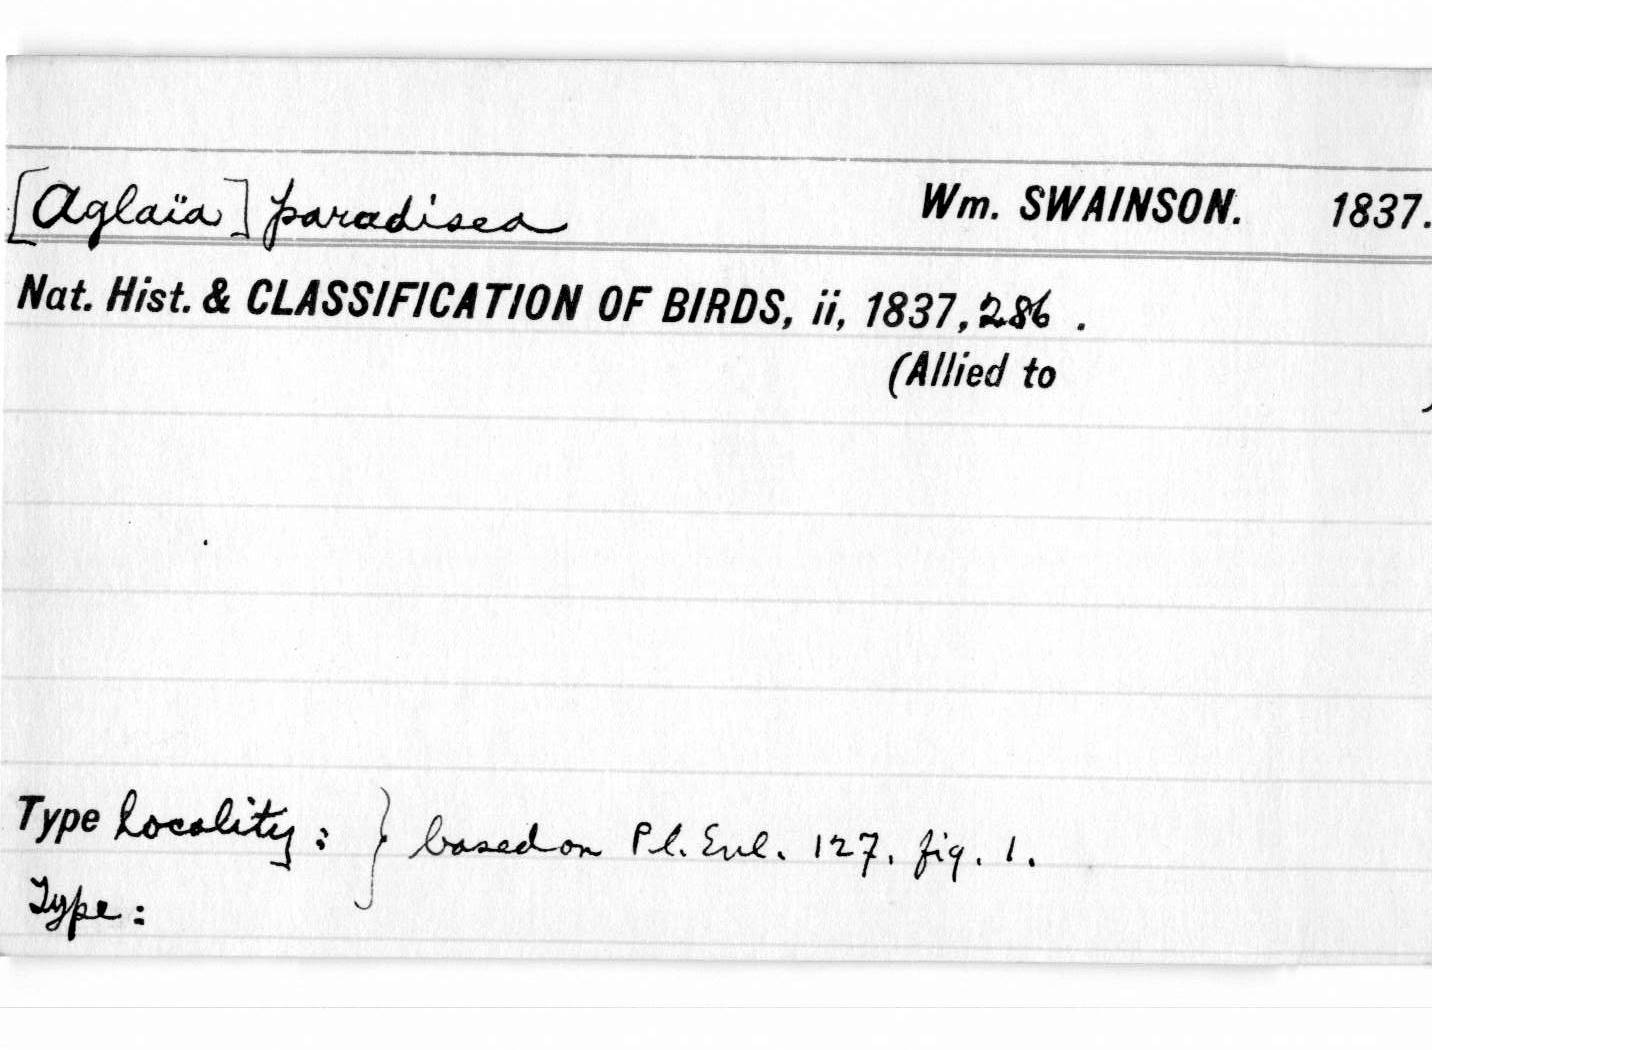 [Aglaïa] paradisea Wm. SWAINSON. 1837.
Nat. Hist. & CLASSIFICATION OF BIRDS, ii, 1837, 286 .
(Allied to )
Type locality : } based on Pl. Enl. 127. fig. 1.
Type :